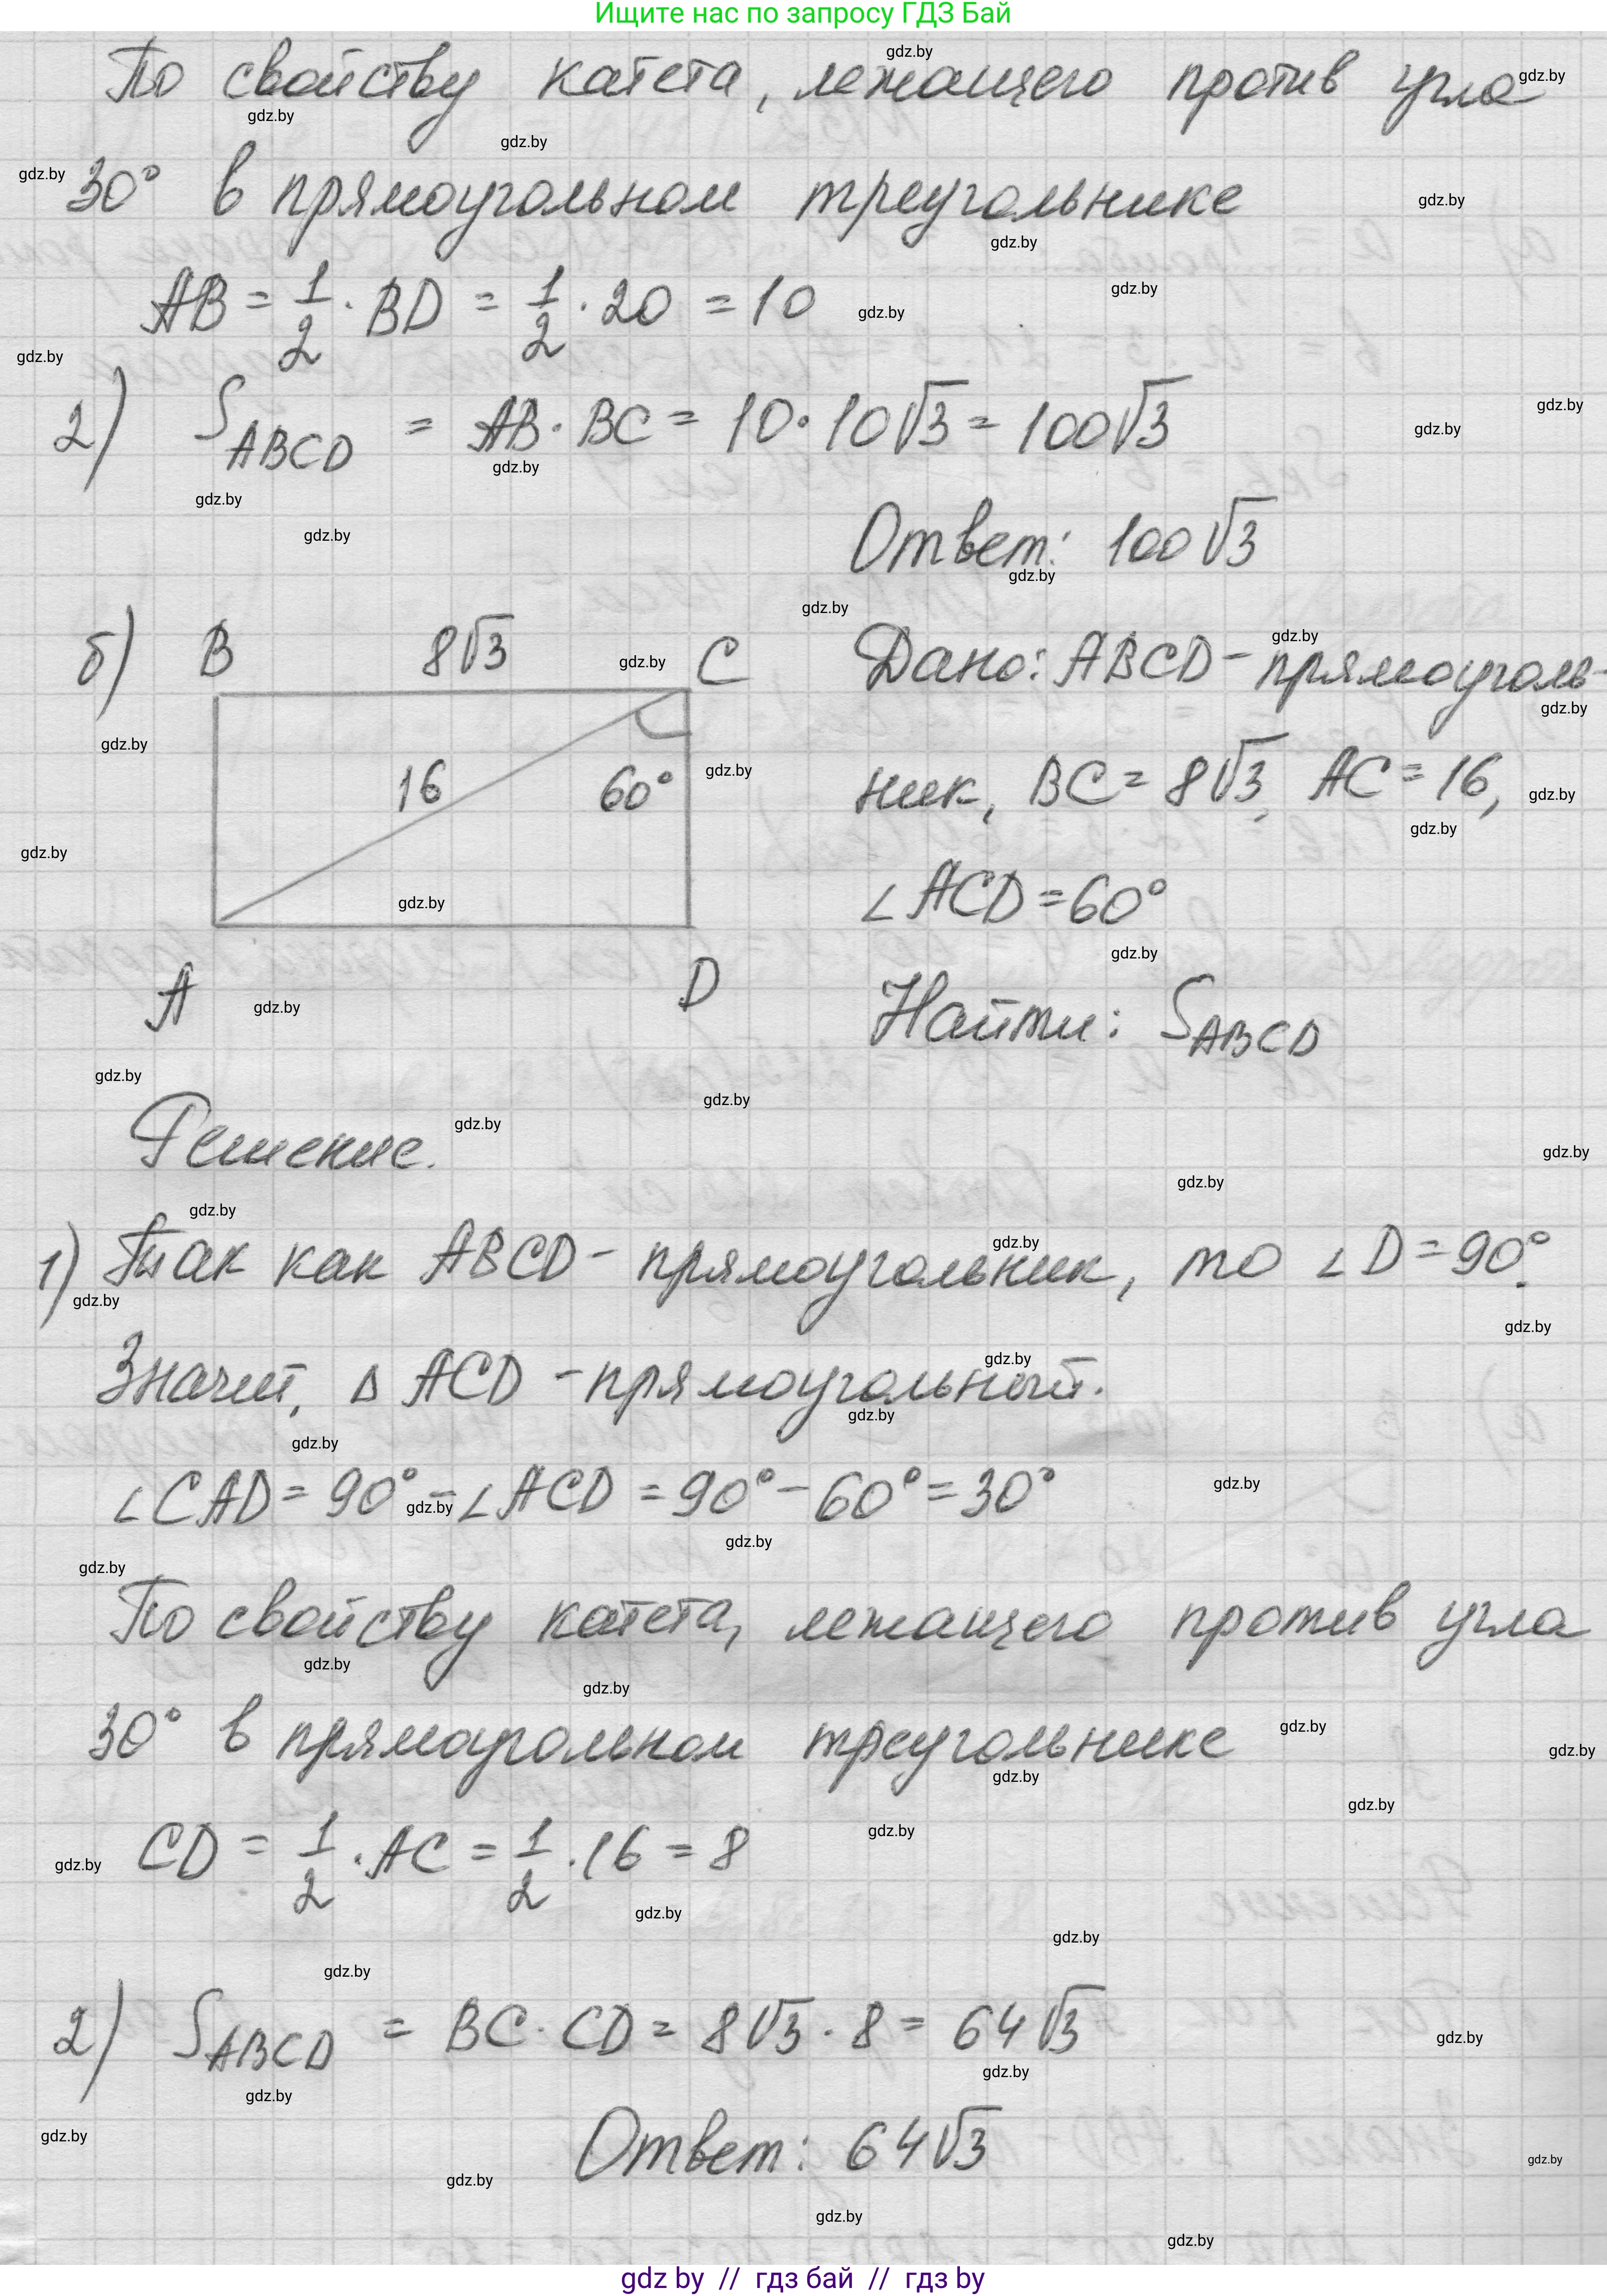 Ищите нас по запросу ГДЗ Бай
По свойству катета, лежащего против угла
30° в прямоугольном треугольнике
AB = 1/2 · BD = 1/2 · 20 = 10
2) S_ABCD = AB · BC = 10 · 10√3 = 100√3
Ответ: 100√3
б) B 8√3 C
16 60°
A D
Дано: ABCD - прямоуголь-
ник, BC = 8√3, AC = 16,
∠ACD = 60°
Найти: S_ABCD
Решение.
1) Так как ABCD - прямоугольник, то ∠D = 90°.
Значит, Δ ACD - прямоугольный.
∠CAD = 90° - ∠ACD = 90° - 60° = 30°
По свойству катета, лежащего против угла
30° в прямоугольном треугольнике
CD = 1/2 · AC = 1/2 · 16 = 8
2) S_ABCD = BC · CD = 8√3 · 8 = 64√3
Ответ: 64√3
gdz by // гдз бай // гдз by